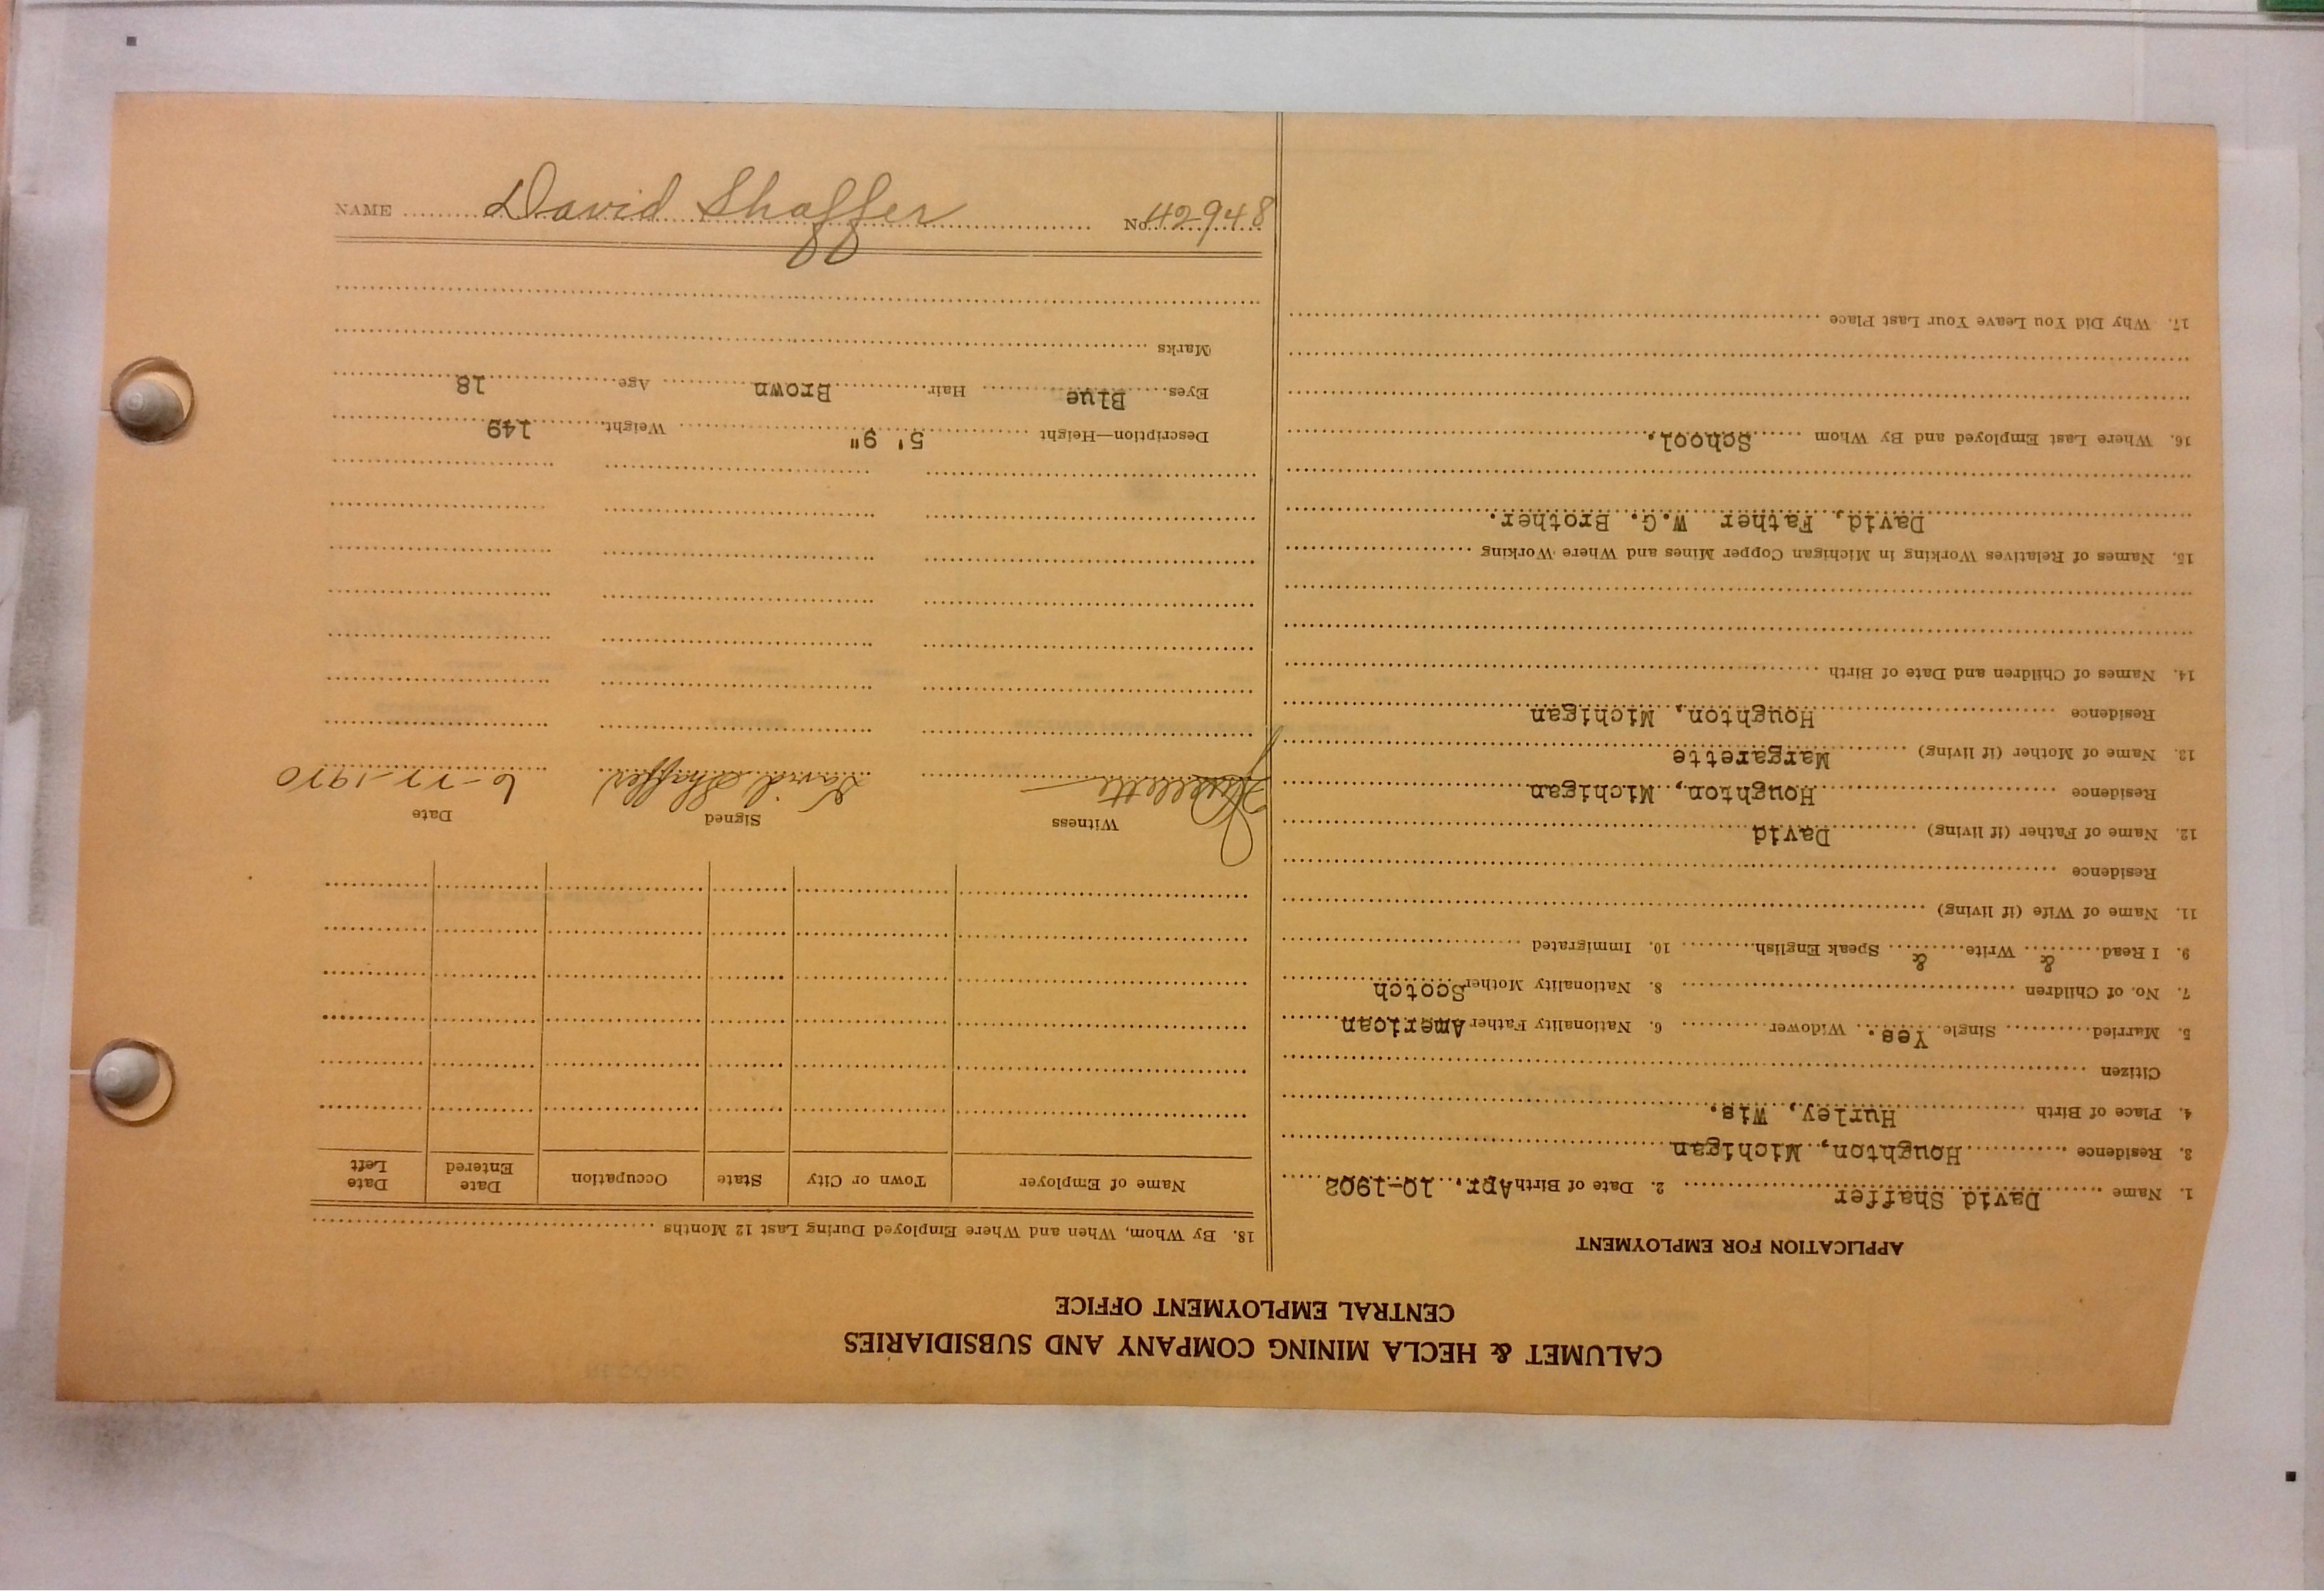 CALUMET & HECLA MINING COMPANY AND SUBSIDIARIES
CENTRAL EMPLOYMENT OFFICE
APPLICATION FOR EMPLOYMENT
1. Name David Shaffer 2. Date of Birth Apr. 10-1902
3. Residence Houghton, Michigan
4. Place of Birth Hurley, Wis.
Citizen
5. Married Single Yes. Widower 6. Nationality Father American
7. No. of Children 8. Nationality Mother Scotch
9. I Read & Write & Speak English 10. Immigrated
11. Name of Wife (if living)
Residence
12. Name of Father (if living) David
Residence Houghton, Michigan
13. Name of Mother (if living) Margarette
Residence Houghton, Michigan
14. Names of Children and Date of Birth
15. Names of Relatives Working in Michigan Copper Mines and Where Working
David, Father W.G. Brother.
16. Where Last Employed and By Whom School.
17. Why Did You Leave Your Last Place
18. By Whom, When and Where Employed During Last 12 Months
Name of Employer Town or City State Occupation Date Entered Date Left
Witness Signed Date
David Shaffer
Description—Height 5' 9" Weight 149
Eyes Blue Hair Brown Age 18
Marks
NAME David Shaffer No. 42948